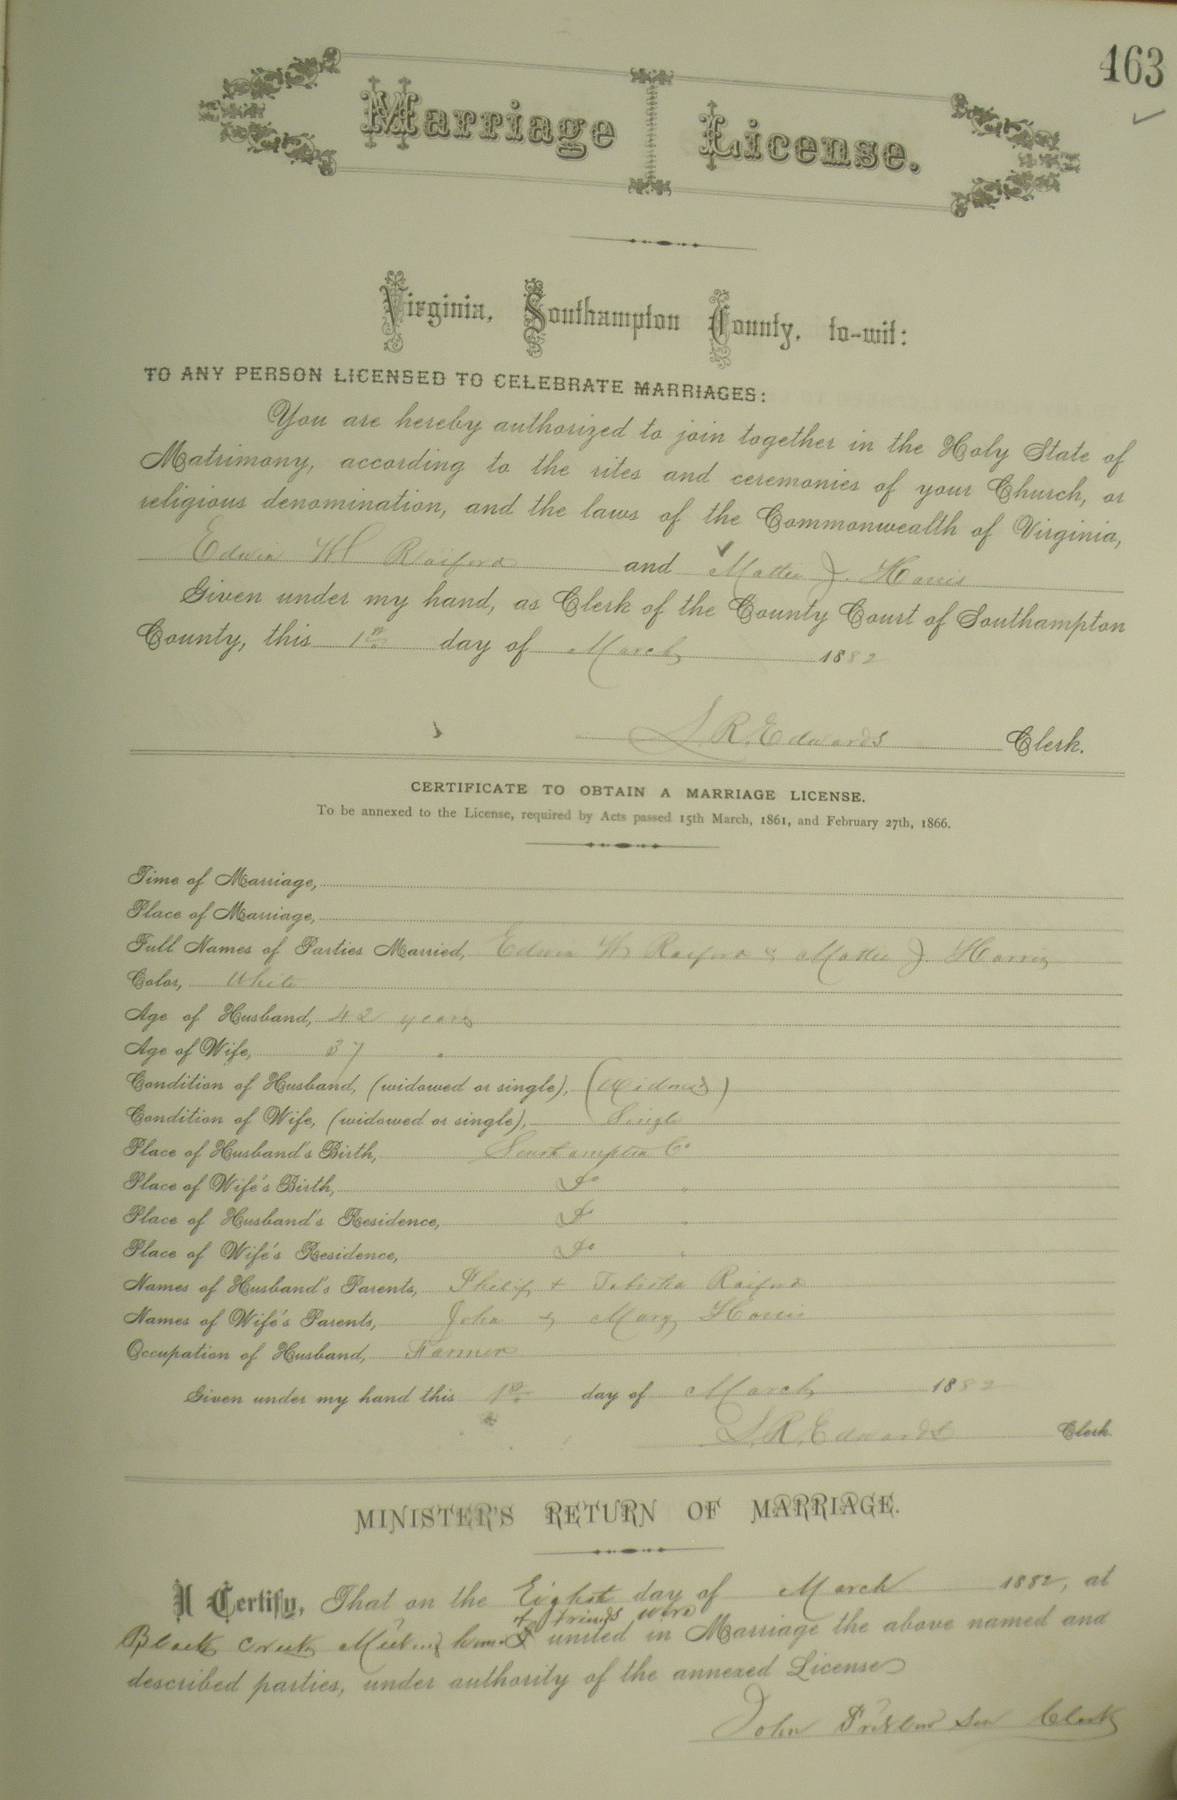 463
Marriage License.
Virginia, Southampton County, to-wit:
TO ANY PERSON LICENSED TO CELEBRATE MARRIAGES:
You are hereby authorized to join together in the Holy State of
Matrimony, according to the rites and ceremonies of your Church, or
religious denomination, and the laws of the Commonwealth of Virginia,
Edwin W Raiford and Mattie J. Harris
Given under my hand, as Clerk of the County Court of Southampton
County, this 1st day of March 1882
L. R. Edwards Clerk.
CERTIFICATE TO OBTAIN A MARRIAGE LICENSE.
To be annexed to the License, required by Acts passed 15th March, 1861, and February 27th, 1866.
Time of Marriage,
Place of Marriage,
Full Names of Parties Married, Edwin W Raiford & Mattie J. Harris
Color, White
Age of Husband, 42 years
Age of Wife, 37 "
Condition of Husband, (widowed or single), (Widowed)
Condition of Wife, (widowed or single), Single
Place of Husband's Birth, Southampton Co
Place of Wife's Birth, Do "
Place of Husband's Residence, Do "
Place of Wife's Residence, Do "
Names of Husband's Parents, Philip & Tabitha Raiford
Names of Wife's Parents, John & Mary Harris
Occupation of Husband, Farmer
Given under my hand this 1st day of March 1882
L. R. Edwards Clerk.
MINISTER'S RETURN OF MARRIAGE.
I Certify, That on the Eighth day of March 1882, at
of Friends were
Black Creek Meeting house united in Marriage the above named and
described parties, under authority of the annexed License
John Clerk